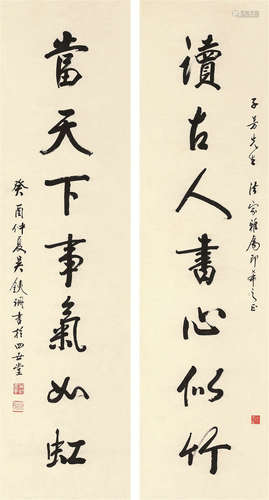 讀古人書心似竹
子芳先生 法家雅屬即希之正
當天下事氣如虹
癸酉仲夏吳鐵珊書於四出堂